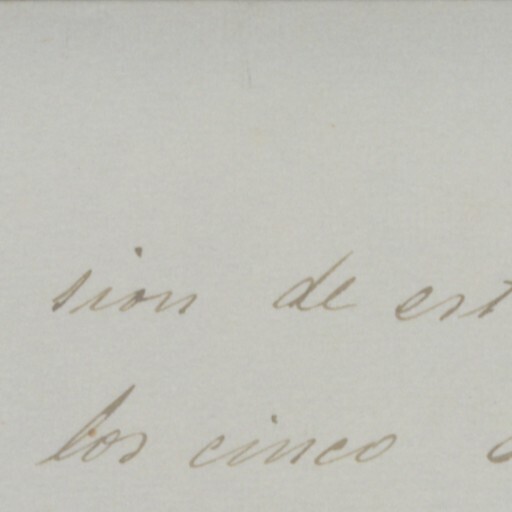 sion de est
los cinco